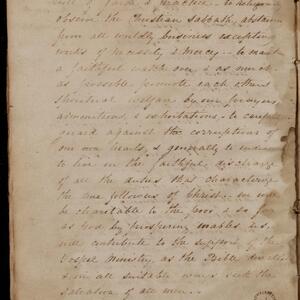 rule of faith & practice - to religiously
observe the Christian Sabbath, abstain
from all worldly business excepting
works of necessity & mercy - to maint
a faithful watch over & as much
as possible promote each others
spiritual welfare by our prayers
admonitions, & exhortations - to carefully
guard against the corruptions of
our own hearts, & generally to endeav
to live in the faithful discharge
of all the duties that characterize
the true followers of Christ. we will
be charitable to the poor & so far
as God by prospering enables us,
will contribute to the support of the
Gospel Ministry, as the Bible directs
& in all suitable ways seek the
salvation of all men -